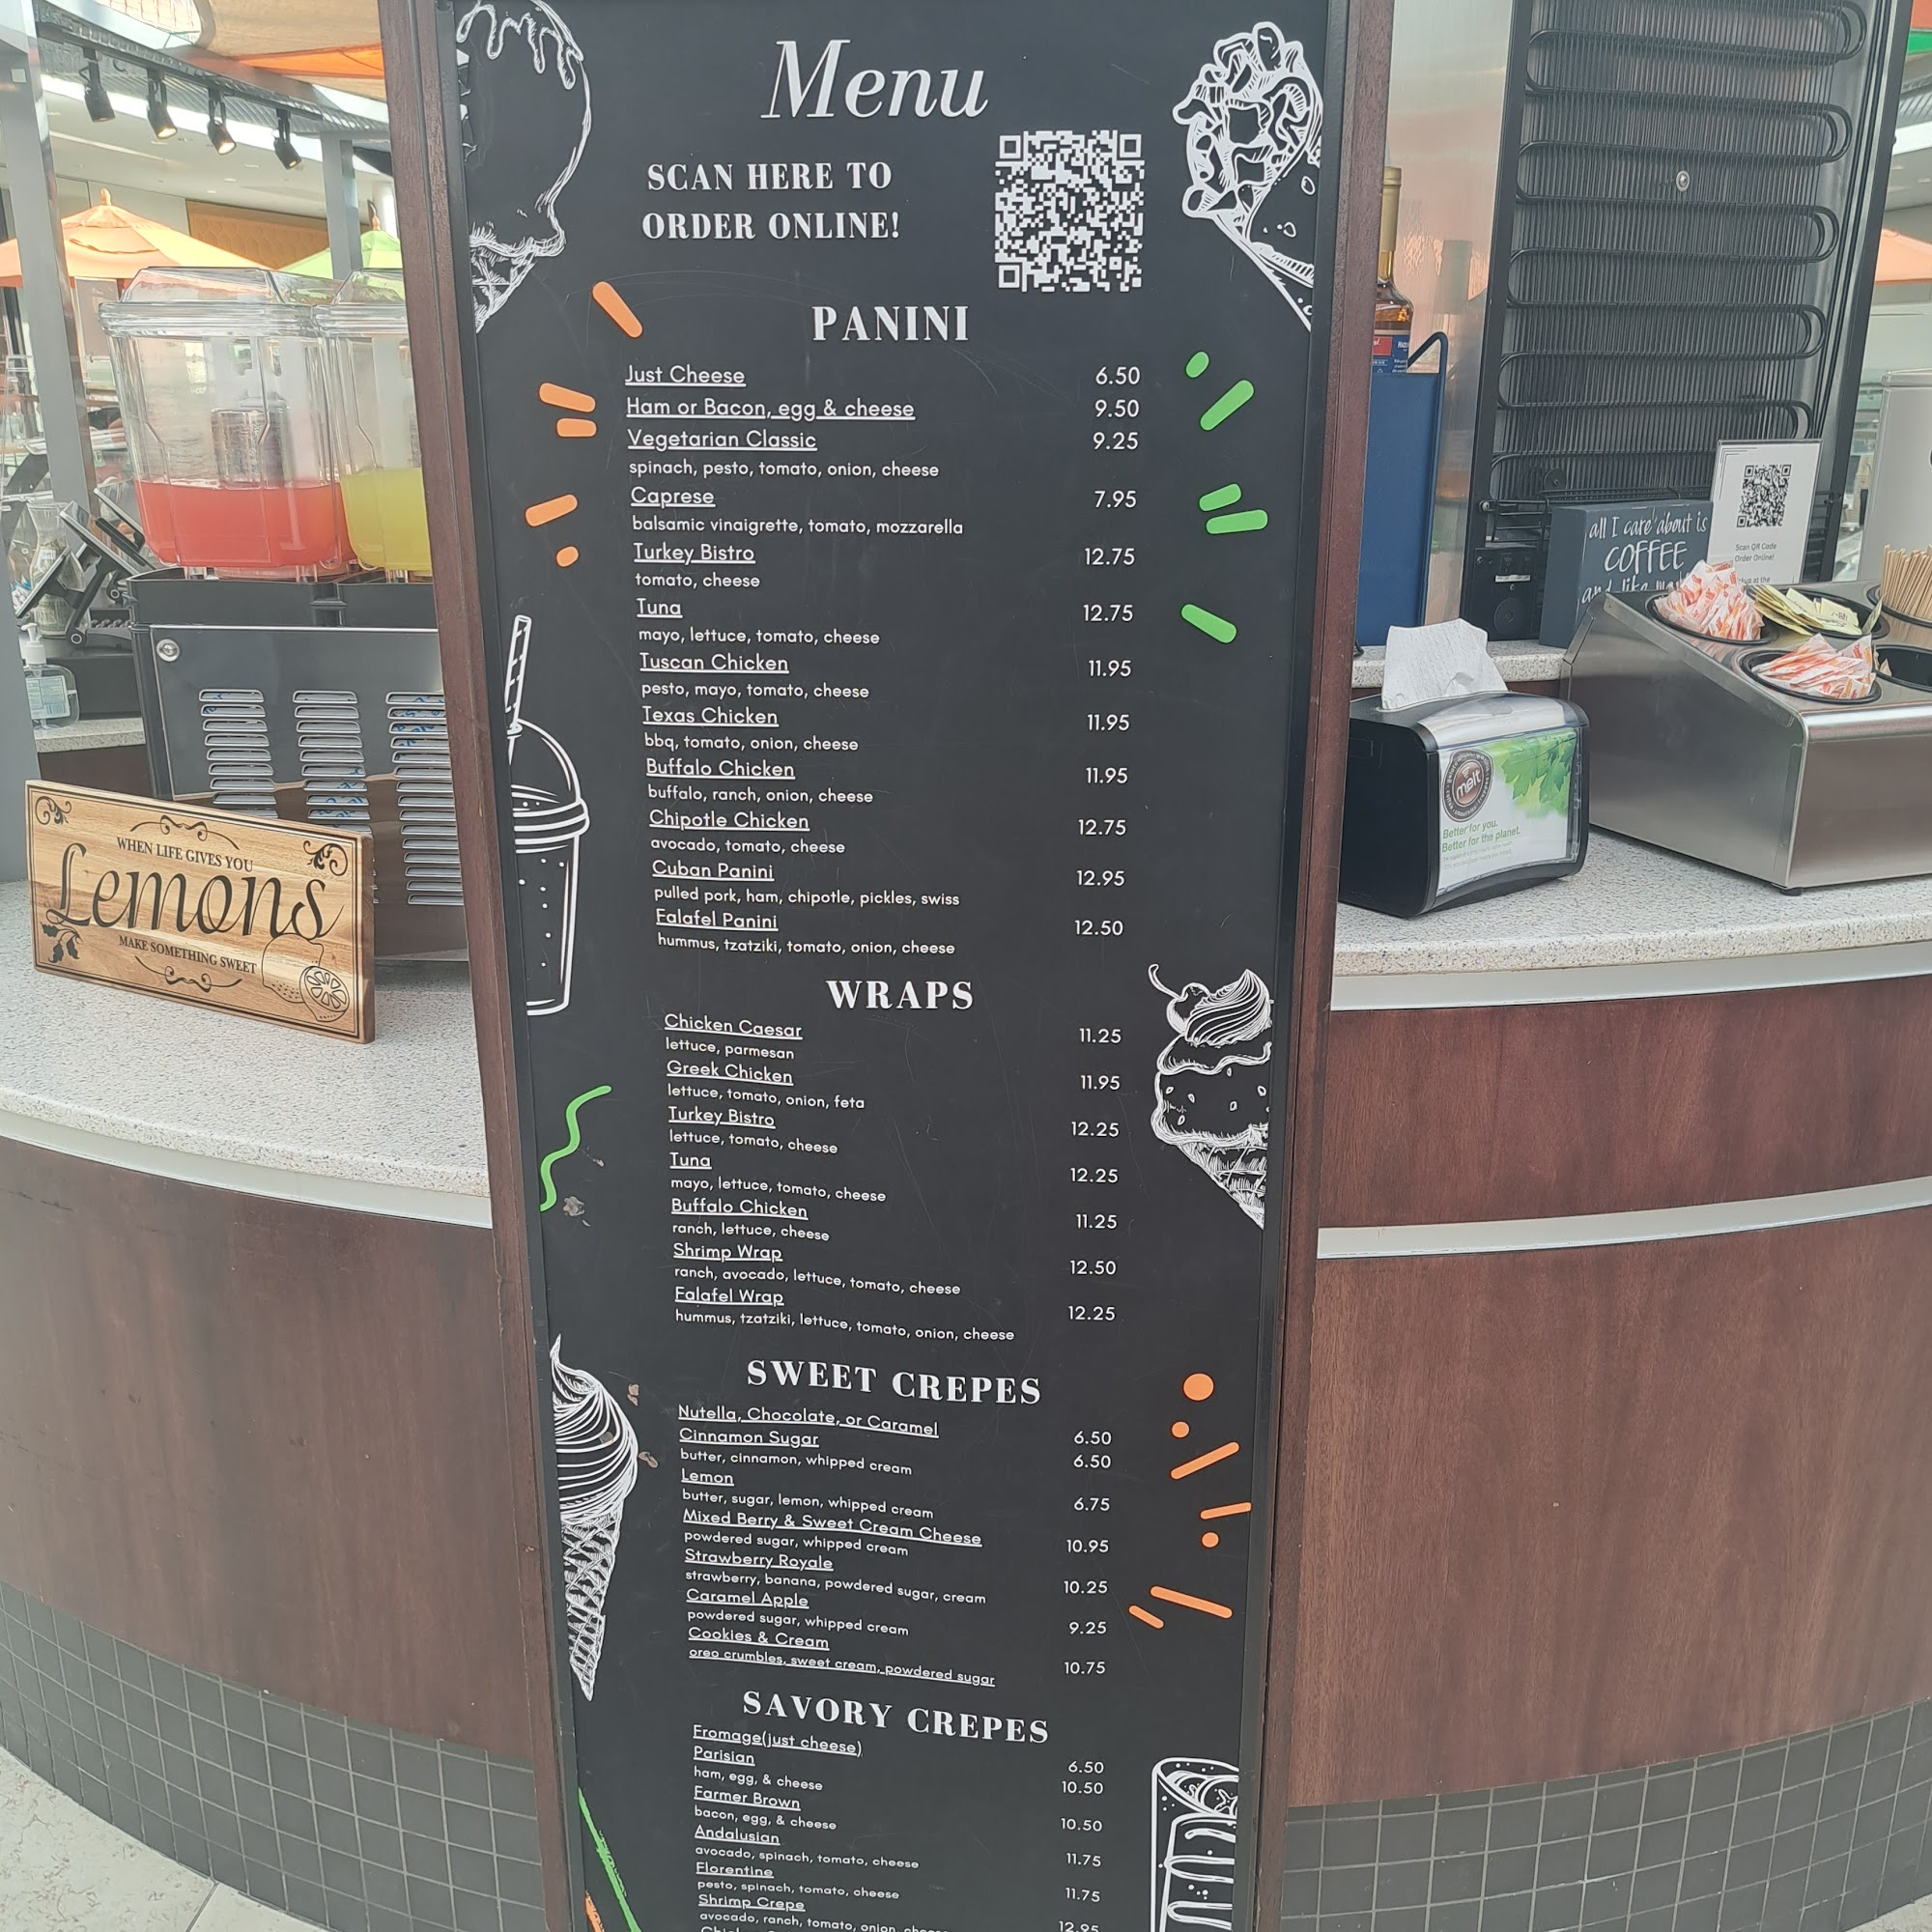 Menu
SCAN HERE TO
ORDER ONLINE!
PANINI
Just Cheese 6.50
Ham or Bacon, egg & cheese 9.50
Vegetarian Classic 9.25
spinach, pesto, tomato, onion, cheese
Caprese 7.95
balsamic vinaigrette, tomato, mozzarella
Turkey Bistro 12.75
tomato, cheese
Tuna 12.75
mayo, lettuce, tomato, cheese
Tuscan Chicken 11.95
pesto, mayo, tomato, cheese
Texas Chicken 11.95
bbq, tomato, onion, cheese
Buffalo Chicken 11.95
buffalo, ranch, onion, cheese
Chipotle Chicken 12.75
avocado, tomato, cheese
Cuban Panini 12.95
pulled pork, ham, chipotle, pickles, swiss
Falafel Panini 12.50
hummus, tzatziki, tomato, onion, cheese
WRAPS
Chicken Caesar 11.25
lettuce, parmesan
Greek Chicken 11.95
lettuce, tomato, onion, feta
Turkey Bistro 12.25
lettuce, tomato, cheese
Tuna 12.25
mayo, lettuce, tomato, cheese
Buffalo Chicken 11.25
ranch, lettuce, cheese
Shrimp Wrap 12.50
ranch, avocado, lettuce, tomato, cheese
Falafel Wrap 12.25
hummus, tzatziki, lettuce, tomato, onion, cheese
SWEET CREPES
Nutella, Chocolate, or Caramel 6.50
Cinnamon Sugar 6.50
butter, cinnamon, whipped cream
Lemon 6.75
butter, sugar, lemon, whipped cream
Mixed Berry & Sweet Cream Cheese 10.95
powdered sugar, whipped cream
Strawberry Royale 10.25
strawberry, banana, powdered sugar, cream
Caramel Apple 9.25
powdered sugar, whipped cream
Cookies & Cream 10.75
oreo crumbles, sweet cream, powdered sugar
SAVORY CREPES
Fromage(just cheese) 6.50
Parisian 10.50
ham, egg, & cheese
Farmer Brown 10.50
bacon, egg, & cheese
Andalusian 11.75
avocado, spinach, tomato, cheese
Florentine 11.75
pesto, spinach, tomato, cheese
Shrimp Crepe 12.95
avocado, ranch, tomato, onion,
WHEN LIFE GIVES YOU
Lemons
MAKE SOMETHING SWEET
all I care about is
COFFEE
and like
Scan QR Code
Order Online!
at the
melt
Better for you.
Better for the planet.